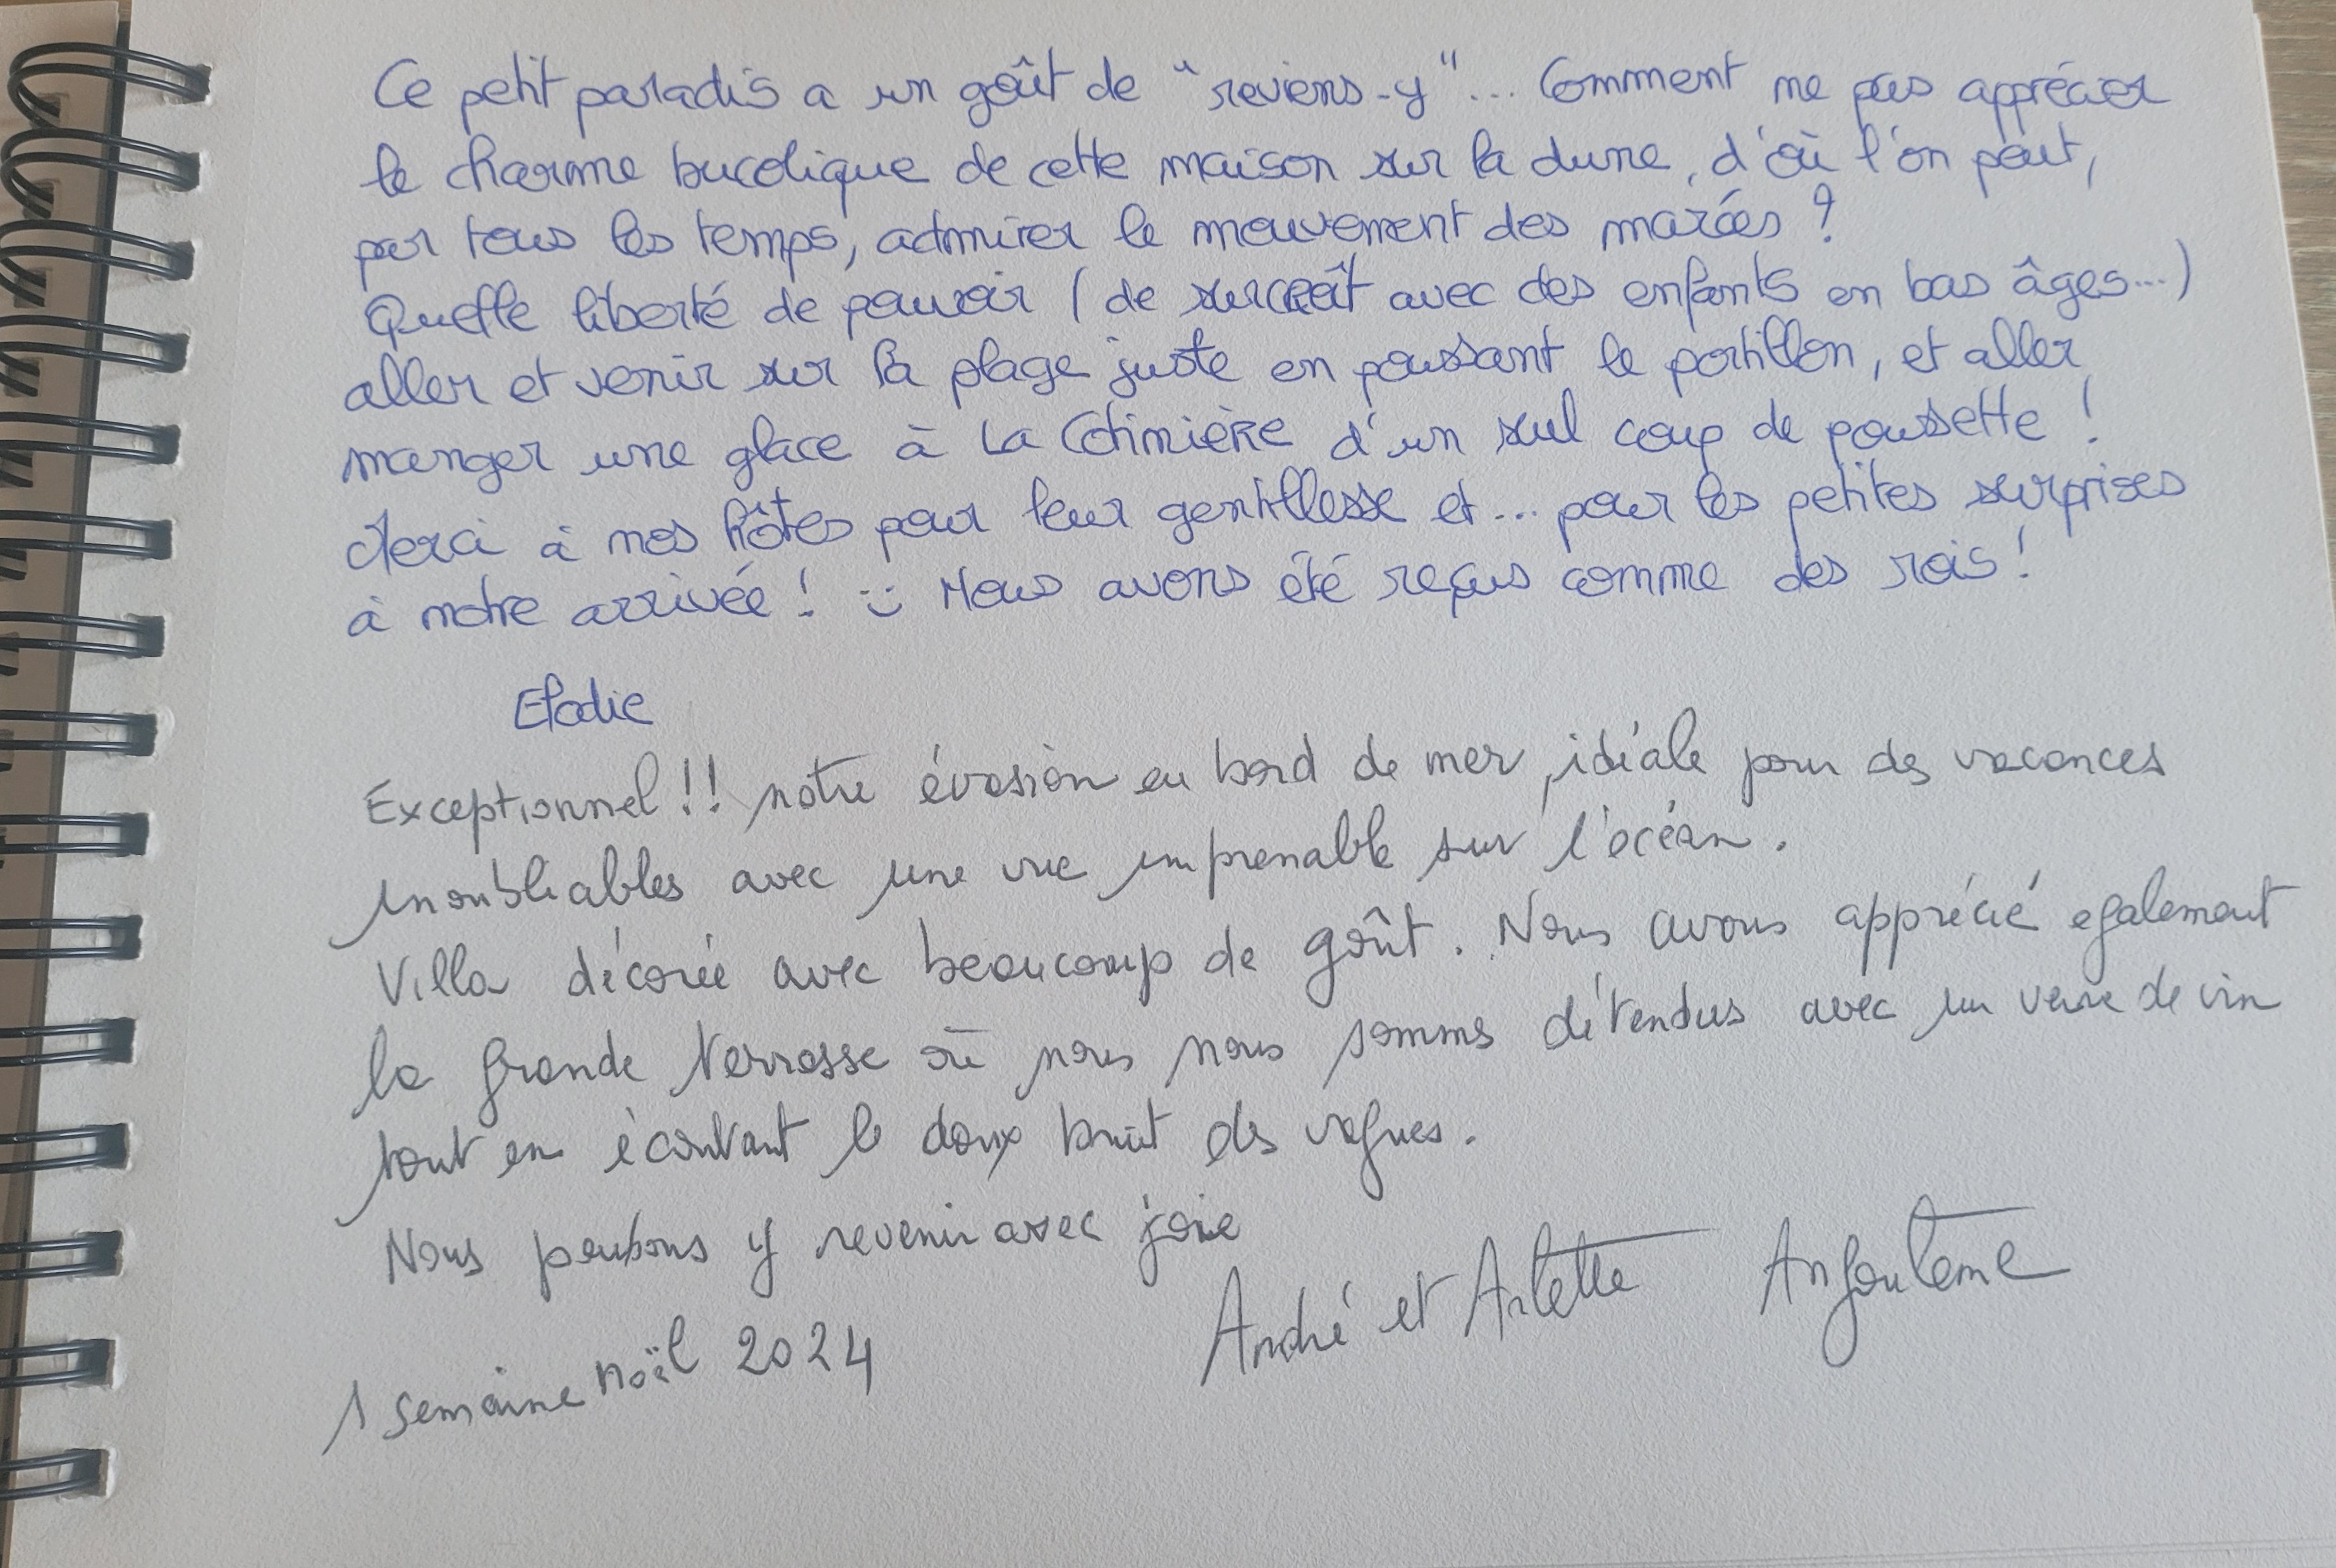 Ce petit paradis a un goût de "reviens-y"... Comment ne pas apprécier
le charme bucolique de cette maison sur la dune, d'où l'on peut,
par tous les temps, admirer le mouvement des marées ?
Quelle liberté de pouvoir (de surcroît avec des enfants en bas âges...)
aller et venir sur la plage juste en poussant le portillon, et aller
manger une glace à La Cotinière d'un seul coup de poussette !
Merci à nos hôtes pour leur gentillesse et... pour les petites surprises
à notre arrivée ! :) Nous avons été reçus comme des rois !
Elodie
Exceptionnel !! notre évasion en bord de mer, idéale pour des vacances
inoubliables avec une vue imprenable sur l'océan.
Villa décorée avec beaucoup de goût. Nous avons apprécié egalement
la grande terrasse où nous nous sommes détendus avec un verre de vin
tout en écoutant le doux bruit des vagues.
Nous pensons y revenir avec joie
André et Arlette Angoulême
1 semaine noël 2024